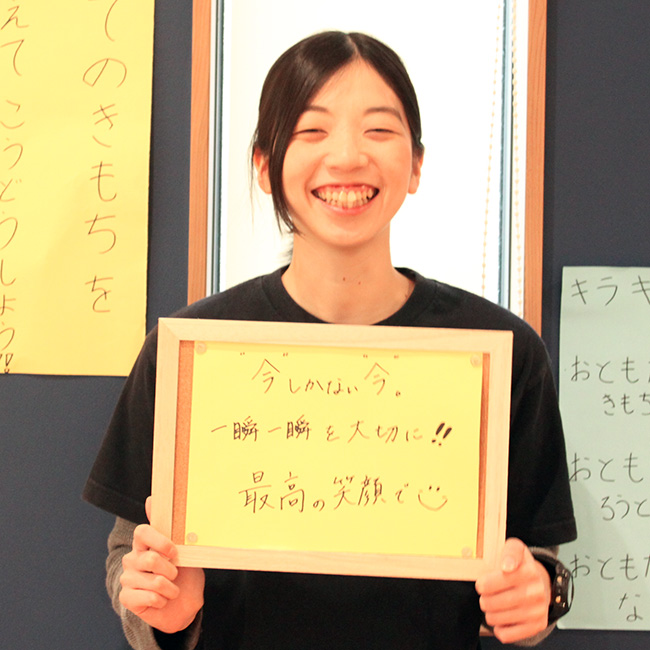 てのきもちを
えて こうどうしよう!!
"今"しかない"今"。
一瞬一瞬を大切に!!
最高の笑顔で☺
キラキ
おともだ
きもち
おとも
ろうと
おともだ
な